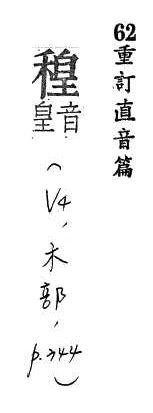 62重訂直音篇
䅣
音皇
(V4,木部,p.244)